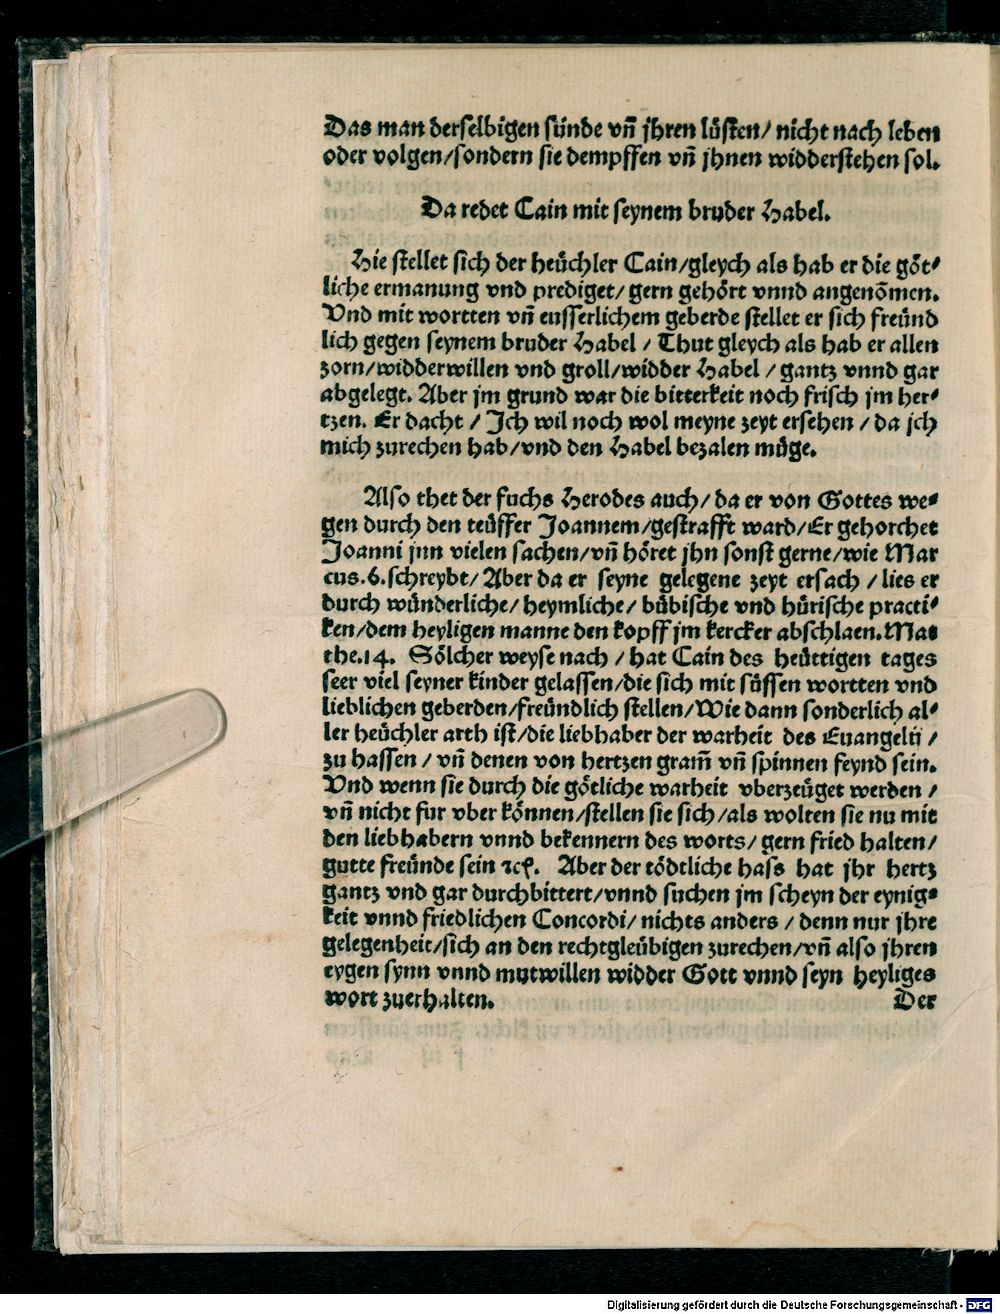 Das man derselbigen sünde vñ jhren lüsten/ nicht nach leben
oder volgen/sondern sie dempffen vñ jhnen widderstehen sol.
Da redet Cain mit seynem bruder Habel.
Hie stellet sich der heüchler Cain/gleych als hab er die göt⸗
liche ermanung vnd prediget/ gern gehört vnnd angenõmen.
Vnd mit wortten vñ eusserlichem geberde stellet er sich freünd
lich gegen seynem bruder Habel / Thut gleych als hab er allen
zorn/widderwillen vnd groll/widder Habel / gantz vnnd gar
abgelegt. Aber jm grund war die bitterkeit noch frisch jm her⸗
tzen. Er dacht / Ich wil noch wol meyne zeyt ersehen / da jch
mich zurechen hab/vnd den Habel bezalen müge.
Also thet der fuchs Herodes auch/ da er von Gottes we⸗
gen durch den teüffer Joannem/gestrafft ward/Er gehorchet
Joanni jnn vielen sachen/vñ höret jhn sonst gerne/wie Mar
cus.6.schreybt/ Aber da er seyne gelegene zeyt ersach / lies er
durch wünderliche/ heymliche/ bübische vnd hürische practi⸗
ken/dem heyligen manne den kopff jm kercker abschlaen.Mat
the.14. Sölcher weyse nach / hat Cain des heüttigen tages
seer viel seyner kinder gelassen/die sich mit süssen wortten vnd
lieblichen geberden/freündlich stellen/Wie dann sonderlich al⸗
ler heüchler arth ist/die liebhaber der warheit des Euangelij /
zu hassen / vñ denen von hertzen gram̃ vñ spinnen feynd sein.
Vnd wenn sie durch die götliche warheit vberzeüget werden /
vñ nicht fur vber können/stellen sie sich/als wolten sie nu mit
den liebhabern vnnd bekennern des worts/ gern fried halten/
gutte freünde sein ꝛcꝭ. Aber der tödtliche hass hat jhr hertz
gantz vnd gar durchbittert/vnnd suchen jm scheyn der eynig⸗
keit vnnd friedlichen Concordi/ nichts anders / denn nur jhre
gelegenheit/sich an den rechtgleübigen zurechen/vñ also jhren
eygen synn vnnd mutwillen widder Gott vnnd seyn heyliges
wort zuerhalten. Der
Digitalisierung gefördert durch die Deutsche Forschungsgemeinschaft - DFG